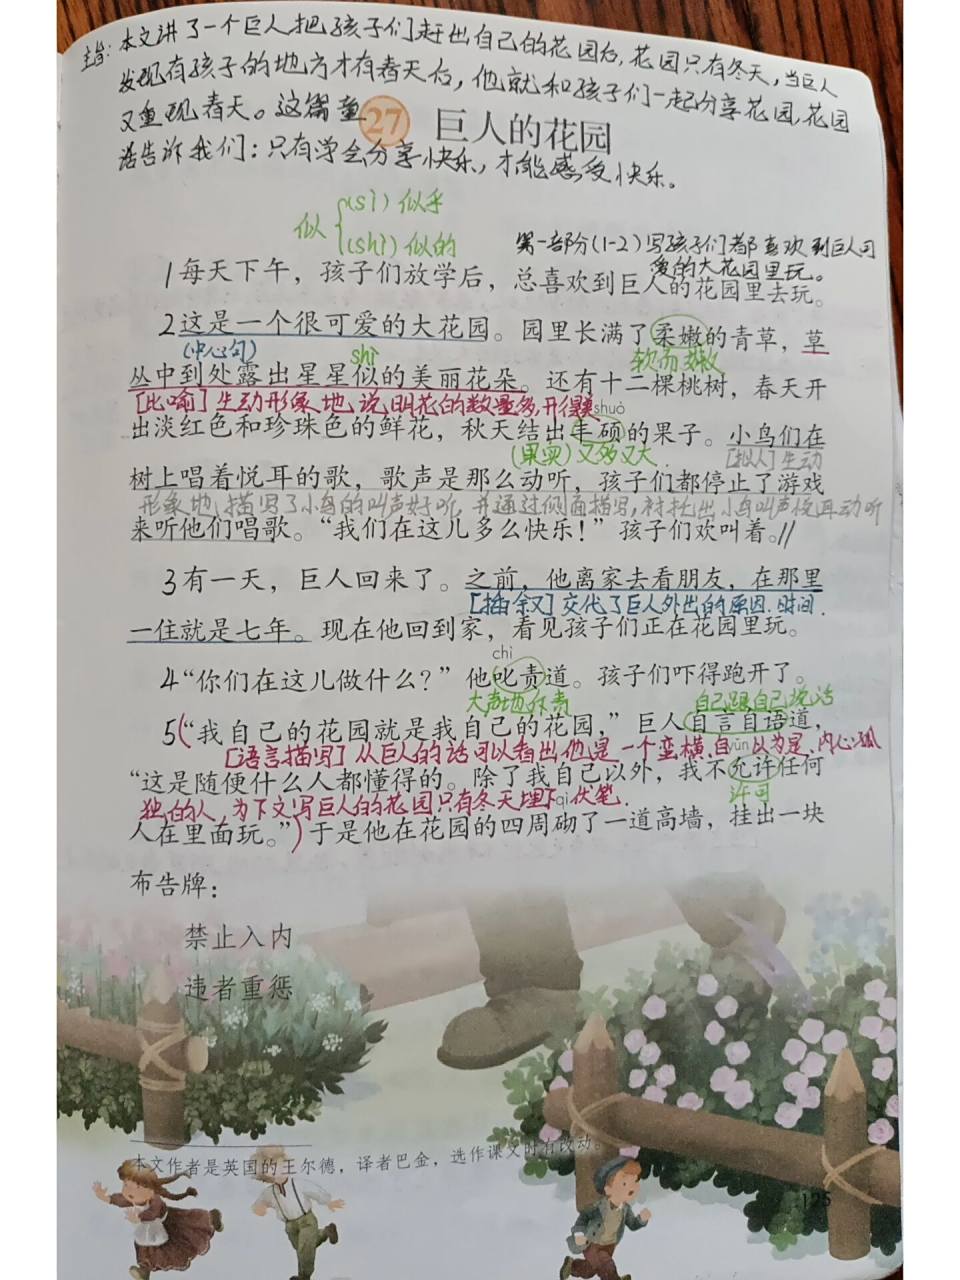 主旨:本文讲了一个巨人把孩子们赶出自己的花园后,花园只有冬天,当巨人
发现有孩子的地方才有春天后,他就和孩子们一起分享花园,花园
又重现春天。这篇童
27 巨人的花园
话告诉我们:只有学会分享快乐,才能感受快乐。
似
(sì)似乎
(shì)似的
第一部分(1-2)写孩子们都喜欢到巨人可
爱的大花园里玩。
1每天下午,孩子们放学后,总喜欢到巨人的花园里去玩。
2这是一个很可爱的大花园。园里长满了柔嫩的青草,草
(中心句)
shì
软而娇嫩
丛中到处露出星星似的美丽花朵。还有十二棵桃树,春天开
[比喻]生动形象地说明花的数量多,开得美
shuò
出淡红色和珍珠色的鲜花,秋天结出丰硕的果子。小鸟们在
(果实)又多又大
[拟人]生动
树上唱着悦耳的歌,歌声是那么动听,孩子们都停止了游戏
形象地描写了小鸟的叫声好听,并通过侧面描写,衬托出小鸟叫声悦耳动听
来听他们唱歌。“我们在这儿多么快乐!”孩子们欢叫着。//
3有一天,巨人回来了。之前,他离家去看朋友,在那里
[插叙]交代了巨人外出的原因.时间.
一住就是七年。现在他回到家,看见孩子们正在花园里玩。
chì
4“你们在这儿做什么?”他叱责道。孩子们吓得跑开了。
大声地斥责
自己跟自己说话
5(“我自己的花园就是我自己的花园,”巨人自言自语道,
[语言描写]从巨人的话可以看出他是一个蛮横.自以为是.内心孤
yǔn
“这是随便什么人都懂得的。除了我自己以外,我不允许任何
独的人,为下文写巨人的花园只有冬天埋下伏笔.
qì
许可
人在里面玩。”)于是他在花园的四周砌了一道高墙,挂出一块
布告牌:
禁止入内
违者重惩
本文作者是英国的王尔德,译者巴金,选作课文时有改动。
125